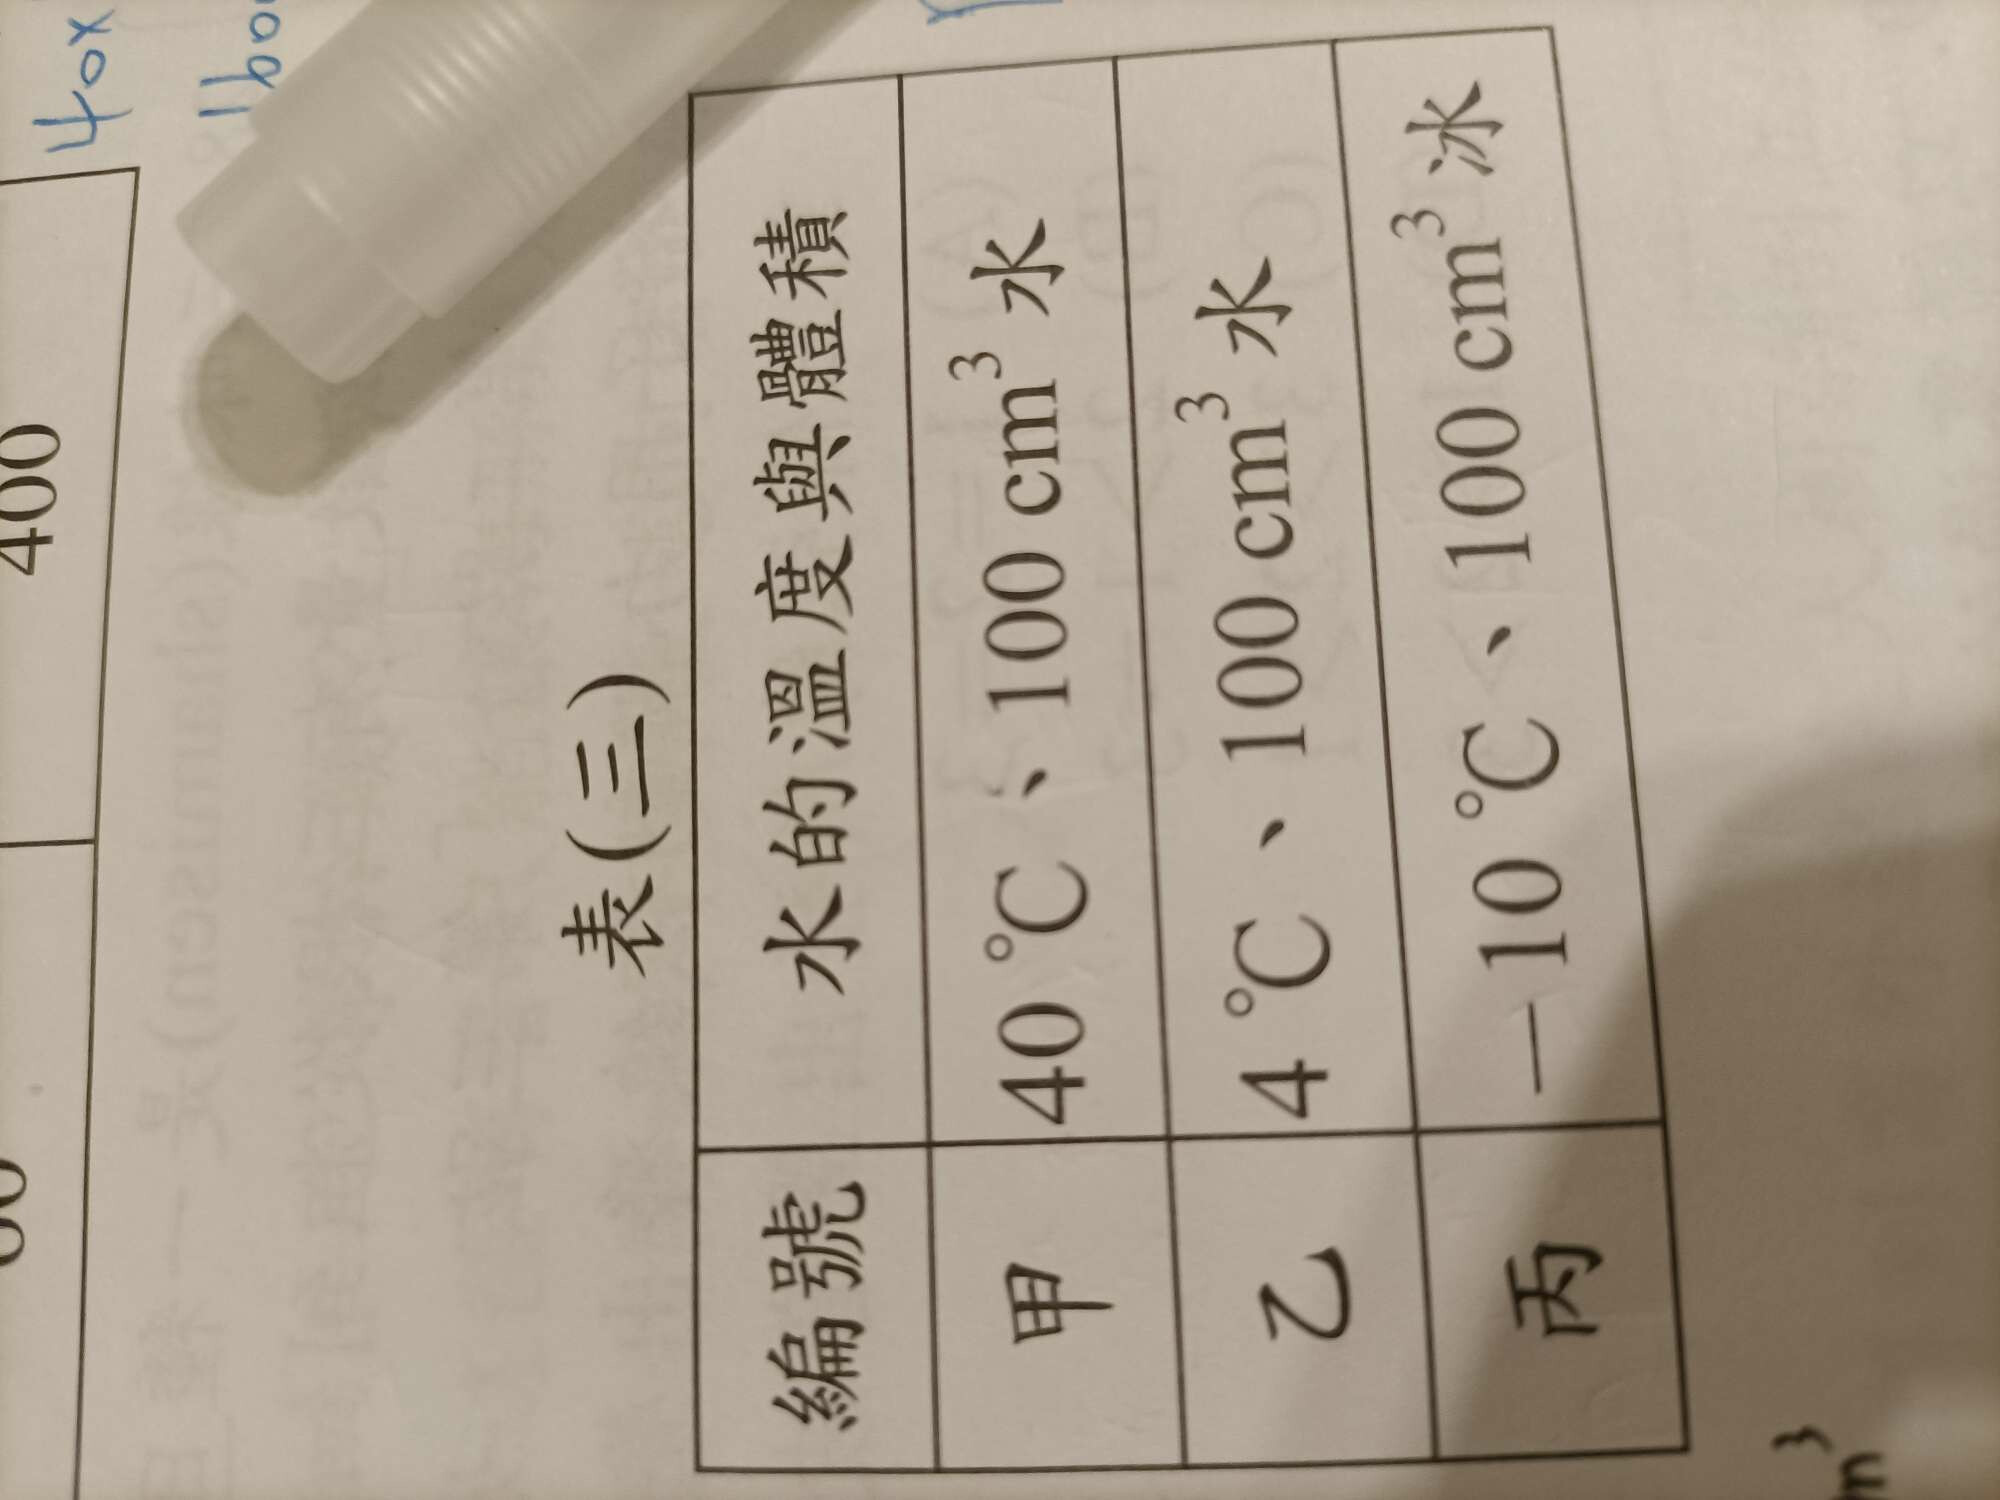 40x
1600
400
00
表(三)
編號 水的溫度與體積
甲 40 ℃、100 cm³ 水
乙 4 ℃、100 cm³ 水
丙 －10 ℃、100 cm³ 冰
m³